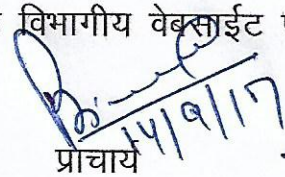 विभागीय वेबसाईट
14/9/17
प्राचार्य